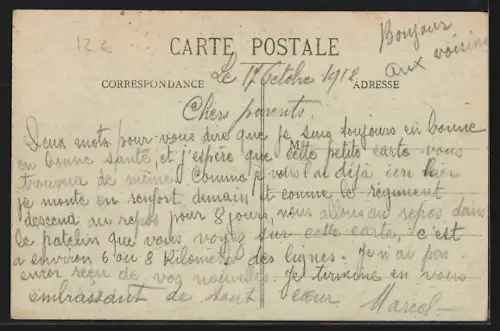 12 c
Bonjour
aux voisins
CARTE POSTALE
Le 17 Octobre 1918
CORRESPONDANCE
ADRESSE
Chers parents.
Deux mots pour vous dire que je suis toujours en bonne
en bonne santé, et j'espère que cette petite carte vous
trouvera de même. Comme je vous l'ai déjà écri hier
je monte en renfort demain et comme le régiment
descend au repos pour 8 jours, nous allons au repos dans
le patelin que vous voyez sur cette carte, c'est
a environ 6 ou 8 Kilometre des lignes. Je n'ai pas
encor reçu de vos nouvelles. Je termine en vous
embrassant de tout cœur Marcel
M